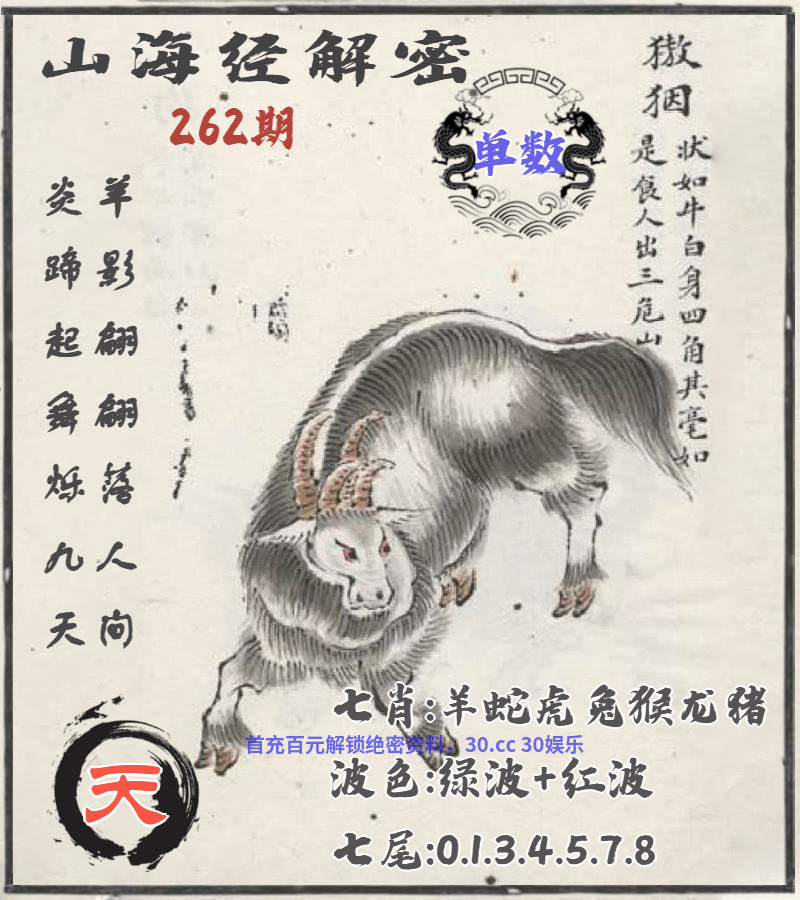 山海经解密
262期
单数
獓𪺽
状如牛白身四角其毫如
是食人出三危山
羊影翩翩落人间
炎蹄起舞烁九天
七肖:羊蛇虎兔猴龙猪
首充百元解锁绝密资料，30.cc 30娱乐
波色:绿波+红波
天
七尾:0.1.3.4.5.7.8